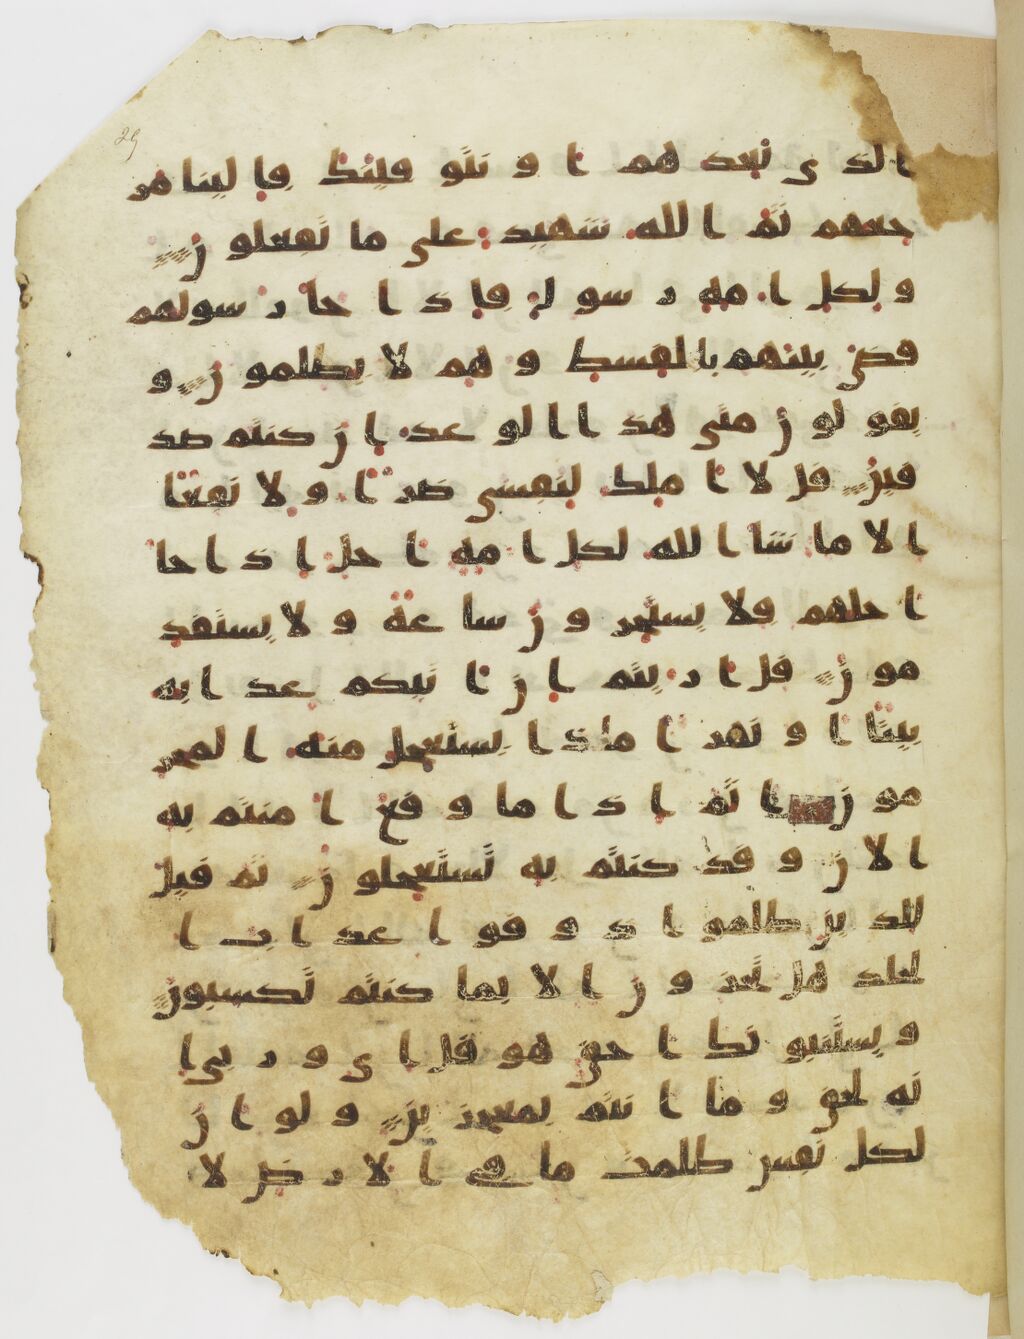 الذى نعدهم ا و نتو فينك فا لينا مر
جعهم ثم ا لله شهيد على ما يفعلو ن
و لكل ا مة ر سو ل فا ذ ا جا ر سولهم
قضى بينهم با لقسط و هم لا يظلمو ن و
يقو لو ن متى هذ ا ا لو عد ا ن كنتم صد
قين قل لا ا ملك لنفسى ضر ا و لا نفعا
ا لا ما شا ا لله لكل ا مة ا جل ا ذ ا جا
ا جلهم فلا يستخر و ن سا عة و لا يستقد
مو ن قل ا ر يتم ا ن ا تيكم عذ ا به
بيتا ا و نهر ا ما ذ ا يستعجل منه ا لمجر
مو ن ا ثم ا ذ ا ما و قع ا منتم به
ا لا ن و قد كنتم به تستعجلو ن ثم قيل
للذ ين ظلمو ا ذ و قو ا عذ ا ب ا
لخلد هل تجز و ن ا لا بما كنتم تكسبون
و يستنبو نك ا حق هو قل ا ى و ر بى ا
نه لحق و ما ا نتم بمعجز ين و لو ا ن
لكل نفس ظلمت ما فى ا لا ر ض لا